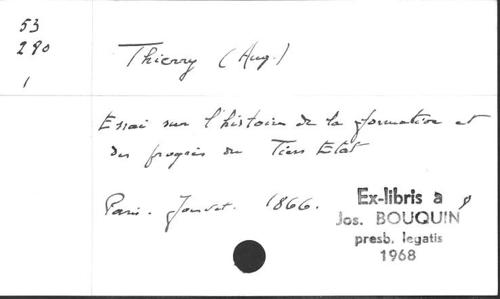 53
290
1
Thierry (Aug.)
Essai sur l'histoire de la formation et
des progrès du Tiers Etat
Paris. Jouvet. 1866.
Ex-libris a
Jos. BOUQUIN
presb. legatis
1968